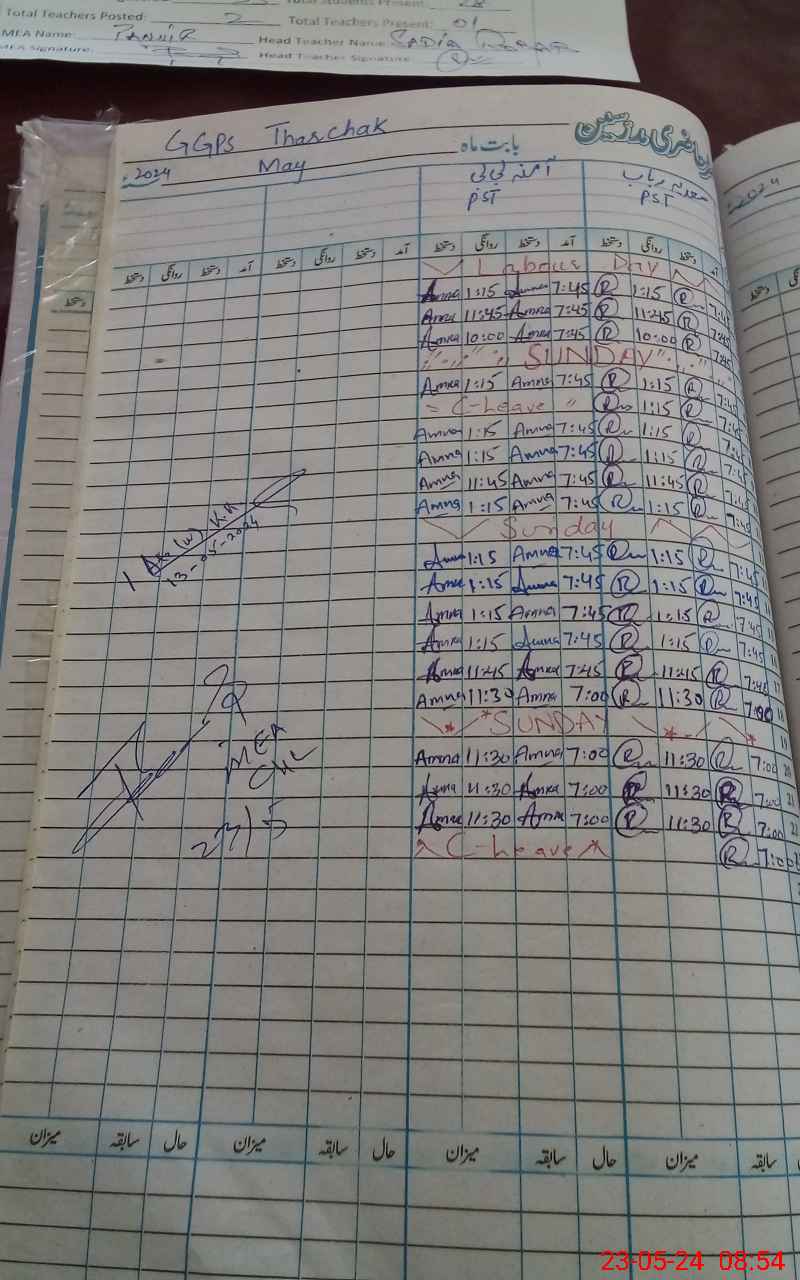 Total Students Present: 28
Total Teachers Posted: 2 Total Teachers Present: 01
MEA Name: Head Teacher Name: SADIA
MEA Signature: Head Teacher Signature:
حاضری مدرسین
GGPS Tharchak بابت ماہ
2024 May
آمنہ بی بی سعدیہ رباب
PST PST
دستخط روانگی دستخط آمد دستخط روانگی دستخط آمد دستخط روانگی دستخط آمد دستخط روانگی دستخط آمد
Labour Day
Amna 1:15 Amna 7:45 R 1:15 R 7:45
Amna 11:45 Amna 7:45 R 11:45 R 7:45
Amna 10:00 Amna 7:45 R 10:00 R 7:45
SUNDAY
Amna 1:15 Amna 7:45 R 1:15 R 7:45
C-Leave R 1:15 R 7:45
Amna 1:15 Amna 7:45 R 1:15 R 7:45
Amna 1:15 Amna 7:45 R 1:15 R 7:45
Amna 11:45 Amna 7:45 R 11:45 R 7:45
Amna 1:15 Amna 7:45 R 1:15 R 7:45
Sunday
Amna 1:15 Amna 7:45 R 1:15 R 7:45
Amna 1:15 Amna 7:45 R 1:15 R 7:45
Amna 1:15 Amna 7:45 R 1:15 R 7:45
Amna 1:15 Amna 7:45 R 1:15 R 7:45
Amna 11:45 Amna 7:45 R 11:45 R 7:45
Amna 11:30 Amna 7:00 R 11:30 R 7:00
SUNDAY
Amna 11:30 Amna 7:00 R 11:30 R 7:00
Amna 11:30 Amna 7:00 R 11:30 R 7:00
Amna 11:30 Amna 7:00 R 11:30 R 7:00
C-Leave R 7:00
13-05-2024
MEA
23/5
میزان سابقہ حال میزان سابقہ حال میزان سابقہ حال میزان سابقہ
2024
23-05-24 08:54